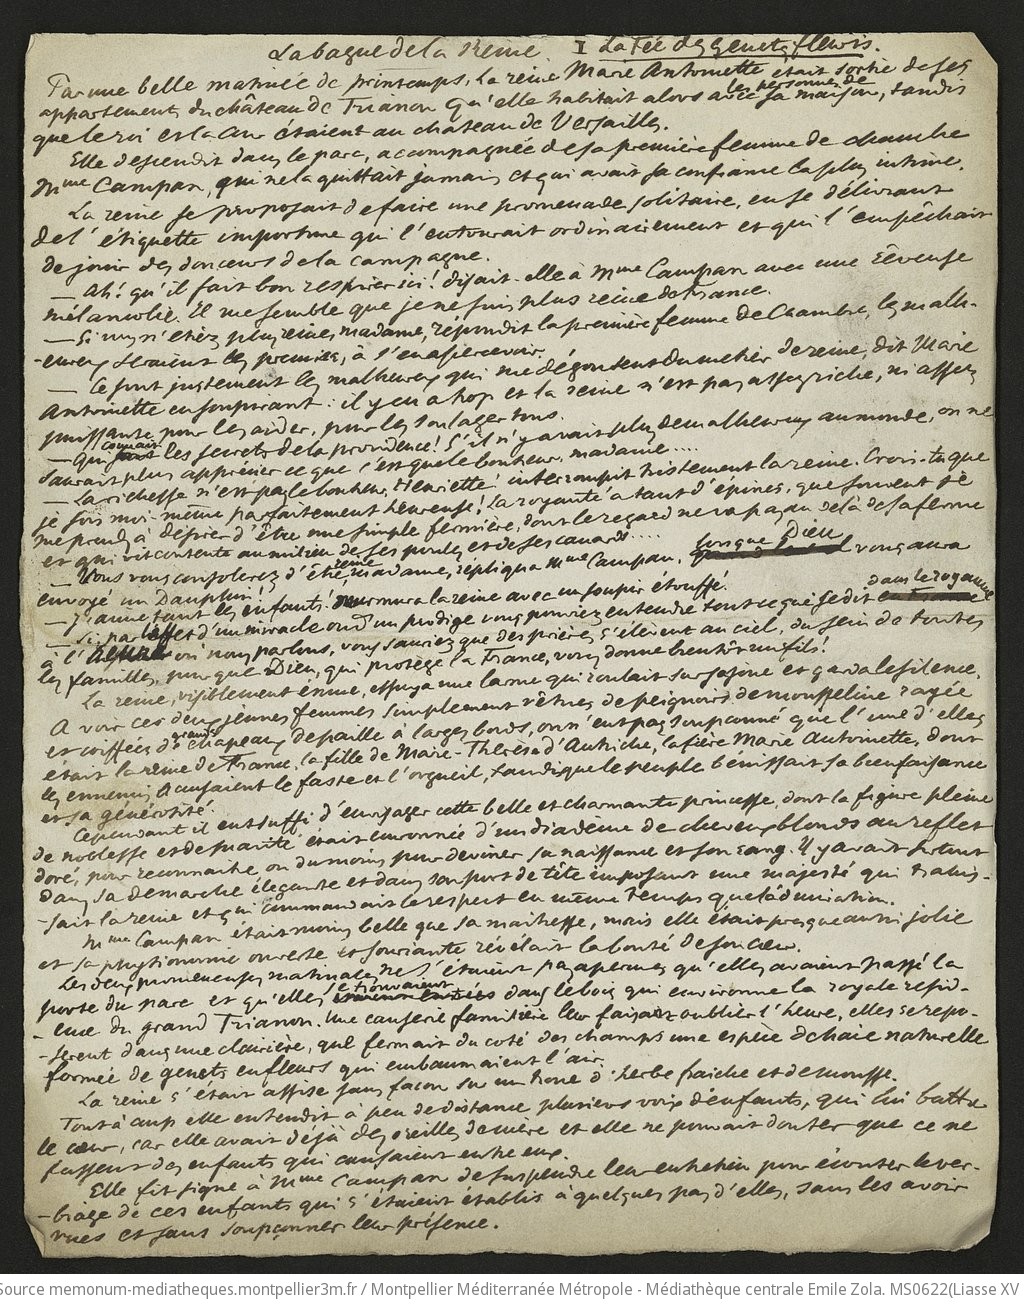 La bague de la Reine. I La Fée des genets fleuris.
Par une belle matinée de printemps, la reine Marie Antoinette était sortie de ses
appartements du château de Trianon qu'elle habitait alors avec les personnes de sa maison, tandis
que le roi et la Cour étaient au château de Versailles.
Elle descendit dans le parc, accompagnée de sa première femme de chambre
Mme Campan, qui ne la quittait jamais et qui avait sa confiance la plus intime.
La reine se proposait de faire une promenade solitaire, en se délivrant
de l'étiquette importune qui l'entourait ordinairement et qui l'empêchait
de jouir des douceurs de la campagne.
— Ah! qu'il fait bon respirer ici! disait-elle à Mme Campan avec une rêveuse
mélancolie. Il me semble que je ne suis plus reine de France.
— Si vous n'étiez plus reine, madame, répondit la première femme de Chambre, les malh-
-eureux seraient les premiers, à s'en apercevoir.
— Ce sont justement les malheureux qui me dégoutent du métier de reine, dit Marie
Antoinette en soupirant: il y en a trop et la reine n'est pas assez riche, ni assez
puissante pour les aider, pour les soulager tous.
— Qui connait les secrets de la providence! S'il n'y avait plus de malheureux au monde, on ne
saurait plus apprécier ce que c'est que le bonheur, madame....
— La richesse n'est pas le bonheur, Henriette! interrompit tristement la reine. Crois-tu que
je sois moi-même parfaitement heureuse! La royauté a tant d'épines, que souvent je
me prends à désirer d'être une simple fermière, dont le regard ne va pas au delà de sa ferme
et qui vit contente au milieu de ses poules et de ses canards....
— Vous vous consolerez d'être reine, madame, répliqua Mme Campan, lorsque Dieu vous aura
envoyé un Dauphin!
— J'aime tant les enfants! murmura la reine avec un soupir étouffé.
— Si, par l'effet d'un miracle ou d'un prodige vous pouviez entendre tout ce qui se dit dans le royaume
à l'heure où nous parlons, vous sauriez que des prières s'élèvent au ciel, du sein de toutes
les familles, pour que Dieu, qui protège la France, vous donne bientôt un fils!
La reine, visiblement émue, essuya une larme qui roulait sur sa joue et garda le silence.
A voir ces deux jeunes femmes simplement vêtues de peignoirs de mousseline rayée
et coiffées de grands chapeaux de paille à larges bords, on n'eut pas soupçonné que l'une d'elles
était la reine de France, la fille de Marie-Thérèse d'Autriche, la fière Marie Antoinette, dont
les ennemis accusaient le faste et l'orgueil, tandis que le peuple bénissait sa bienfaisance
et sa générosité.
Cependant il eut suffi d'envisager cette belle et charmante princesse, dont la figure pleine
de noblesse et de suavité était couronnée d'un diadème de cheveux blonds au reflet
doré, pour reconnaitre, ou du moins pour deviner sa naissance et son sang. Il y avait surtout
dans sa démarche élégante et dans son port de tête imposant une majesté qui trahis-
-sait la reine et qui commandait le respect en même temps que l'admiration.
Mme Campan était moins belle que sa maitresse, mais elle était presque aussi jolie
et sa physionomie ouverte et souriante révélait la bonté de son cœur.
Les deux promeneuses matinales ne s'étaient pas aperçues qu'elles avaient passé la
porte du parc et qu'elles se trouvaient dans le bois qui environne la royale resid-
-ence du grand Trianon. Une causerie familière leur faisait oublier l'heure, elles se repo-
-sèrent dans une clairière, que fermait du coté des champs une espèce de haie naturelle
formée de genets en fleurs qui embaumaient l'air.
La reine s'était assise sans façon sur un trone d'herbe fraiche et de mousse.
Tout à coup elle entendit à peu de distance plusieurs voix d'enfants, qui lui battre
le cœur, car elle avait déjà des oreilles de mère et elle ne pouvait douter que ce ne
fussent des enfants qui causaient entre eux.
Elle fit signe à Mme Campan de suspendre leur entretien pour écouter le ver-
-biage de ces enfants qui s'étaient établis à quelques pas d'elles, sans les avoir
vues et sans soupçonner leur présence.
Source memonum-mediatheques.montpellier3m.fr / Montpellier Méditerranée Métropole - Médiathèque centrale Emile Zola. MS0622(Liasse XV